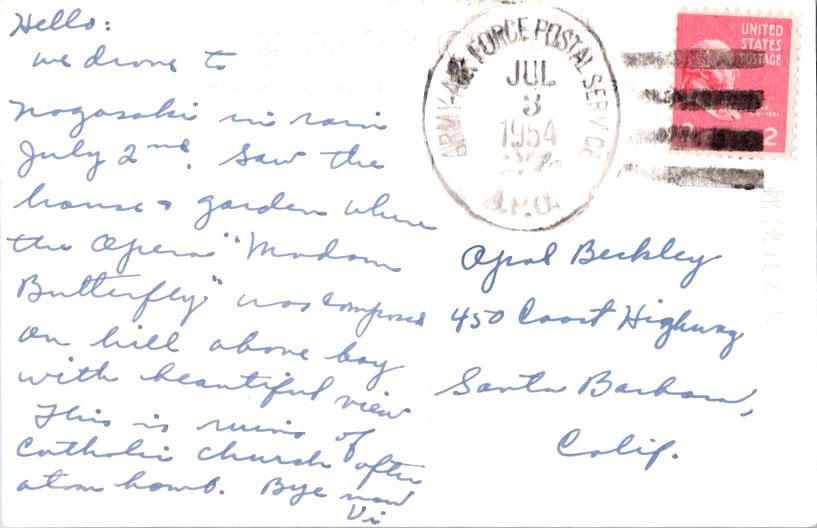 Hello:
we drove to
Nagasaki in rain
July 2nd. Saw the
house & garden where
the Opera "Madam
Butterfly" was composed
on hill above bay
with beautiful view
This is ruins of
Catholic church after
atom bomb. Bye now
Vi
ARMY-AIR FORCE POSTAL SERVICE
JUL
3
1954
A.P.O.
UNITED
STATES
POSTAGE
2
Opal Beckley
450 Coast Highway
Santa Barbara,
Calif.
POST